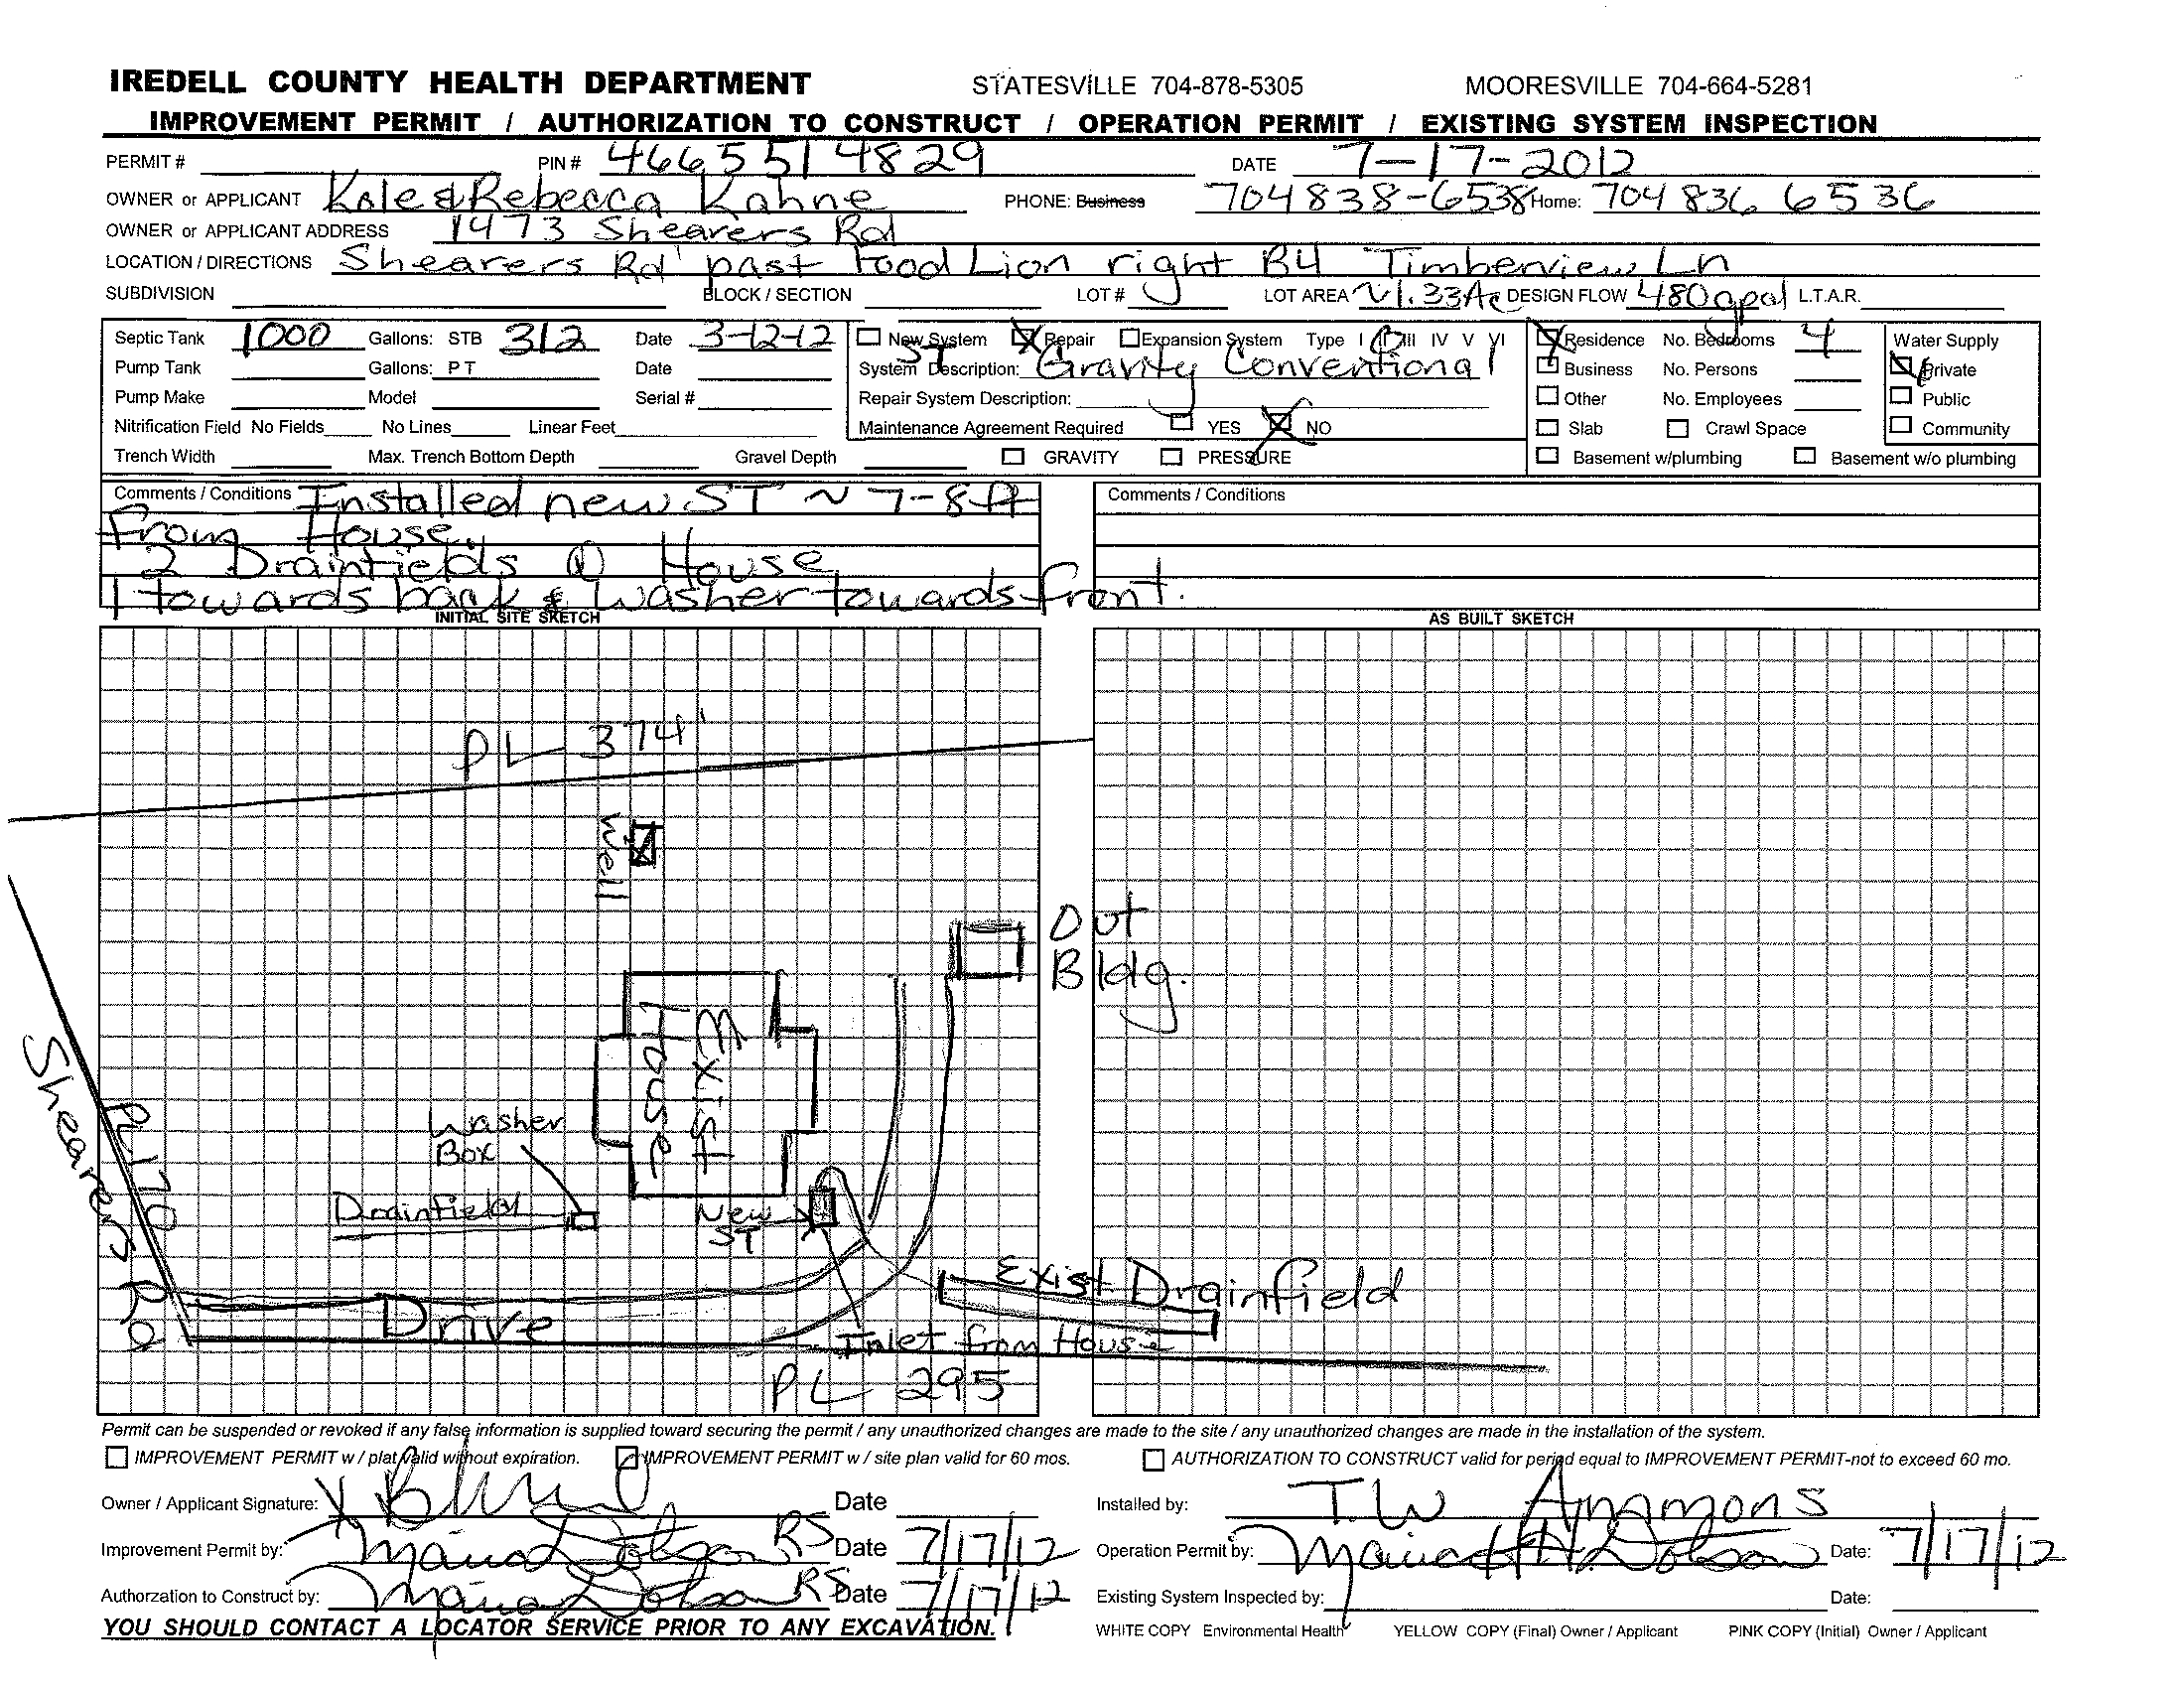 IREDELL COUNTY HEALTH DEPARTMENT STATESVILLE 704-878-5305 MOORESVILLE 704-664-5281
IMPROVEMENT PERMIT / AUTHORIZATION TO CONSTRUCT / OPERATION PERMIT / EXISTING SYSTEM INSPECTION
PERMIT # PIN # 4665514829 DATE 7-17-2012
OWNER or APPLICANT Kale & Rebecca Kahne PHONE: Business 704 838-6538 Home: 704 836 6536
OWNER or APPLICANT ADDRESS 1473 Shearers Rd
LOCATION / DIRECTIONS Shearers Rd past Food Lion right B4 Timberview Ln
SUBDIVISION BLOCK / SECTION LOT # LOT AREA ~1.33Ac DESIGN FLOW 480gpd L.T.A.R.
Septic Tank 1000 Gallons: STB 312 Date 3-12-12 New System Repair Expansion System Type I II III IV V VI Residence No. Bedrooms 4 Water Supply
Pump Tank Gallons: PT Date System Description: ST Gravity Conventional Business No. Persons Private
Pump Make Model Serial # Repair System Description: Other No. Employees Public
Nitrification Field No Fields No Lines Linear Feet Maintenance Agreement Required YES NO Slab Crawl Space Community
Trench Width Max. Trench Bottom Depth Gravel Depth GRAVITY PRESSURE Basement w/plumbing Basement w/o plumbing
Comments / Conditions Installed new ST ~ 7-8 ft Comments / Conditions
From House.
2 Drainfields @ House
1 towards back & Washer towards front.
INITIAL SITE SKETCH AS BUILT SKETCH
PL 374'
Well
Out
Bldg.
Exist
House
Shearers Rd
PL 170
Washer
Box
Drainfield
New
ST
Exist Drainfield
Drive
Inlet from House
PL 295
Permit can be suspended or revoked if any false information is supplied toward securing the permit / any unauthorized changes are made to the site / any unauthorized changes are made in the installation of the system.
IMPROVEMENT PERMIT w / plat valid without expiration. IMPROVEMENT PERMIT w / site plan valid for 60 mos. AUTHORIZATION TO CONSTRUCT valid for period equal to IMPROVEMENT PERMIT-not to exceed 60 mo.
Owner / Applicant Signature: X Date Installed by: T.W Ammons
Improvement Permit by: RS Date 7/17/12 Operation Permit by: Dobson Date: 7/17/12
Authorzation to Construct by: RS Date 7/17/12 Existing System Inspected by: Date:
YOU SHOULD CONTACT A LOCATOR SERVICE PRIOR TO ANY EXCAVATION. WHITE COPY Environmental Health YELLOW COPY (Final) Owner / Applicant PINK COPY (Initial) Owner / Applicant